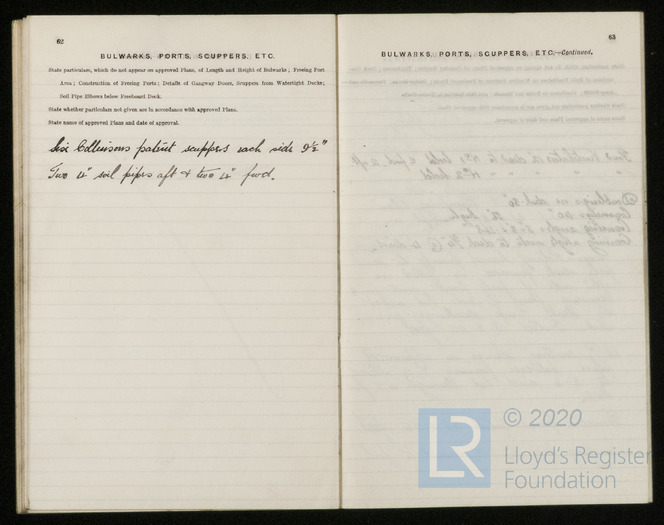 62
BULWARKS, PORTS, SCUPPERS, ETC.
State particulars, which do not appear on approved Plans, of Length and Height of Bulwarks; Freeing Port
Area; Construction of Freeing Ports; Details of Gangway Doors, Scuppers from Watertight Decks;
Soil Pipe Elbows below Freeboard Deck.
State whether particulars not given are in accordance with approved Plans.
State name of approved Plans and date of approval.
Six Collinsons patent scuppers each side 9½"
Two 4" soil pipes aft & two 4" fwd.
63
BULWARKS, PORTS, SCUPPERS, ETC.—Continued.
LR
© 2020
Lloyd's Register
Foundation